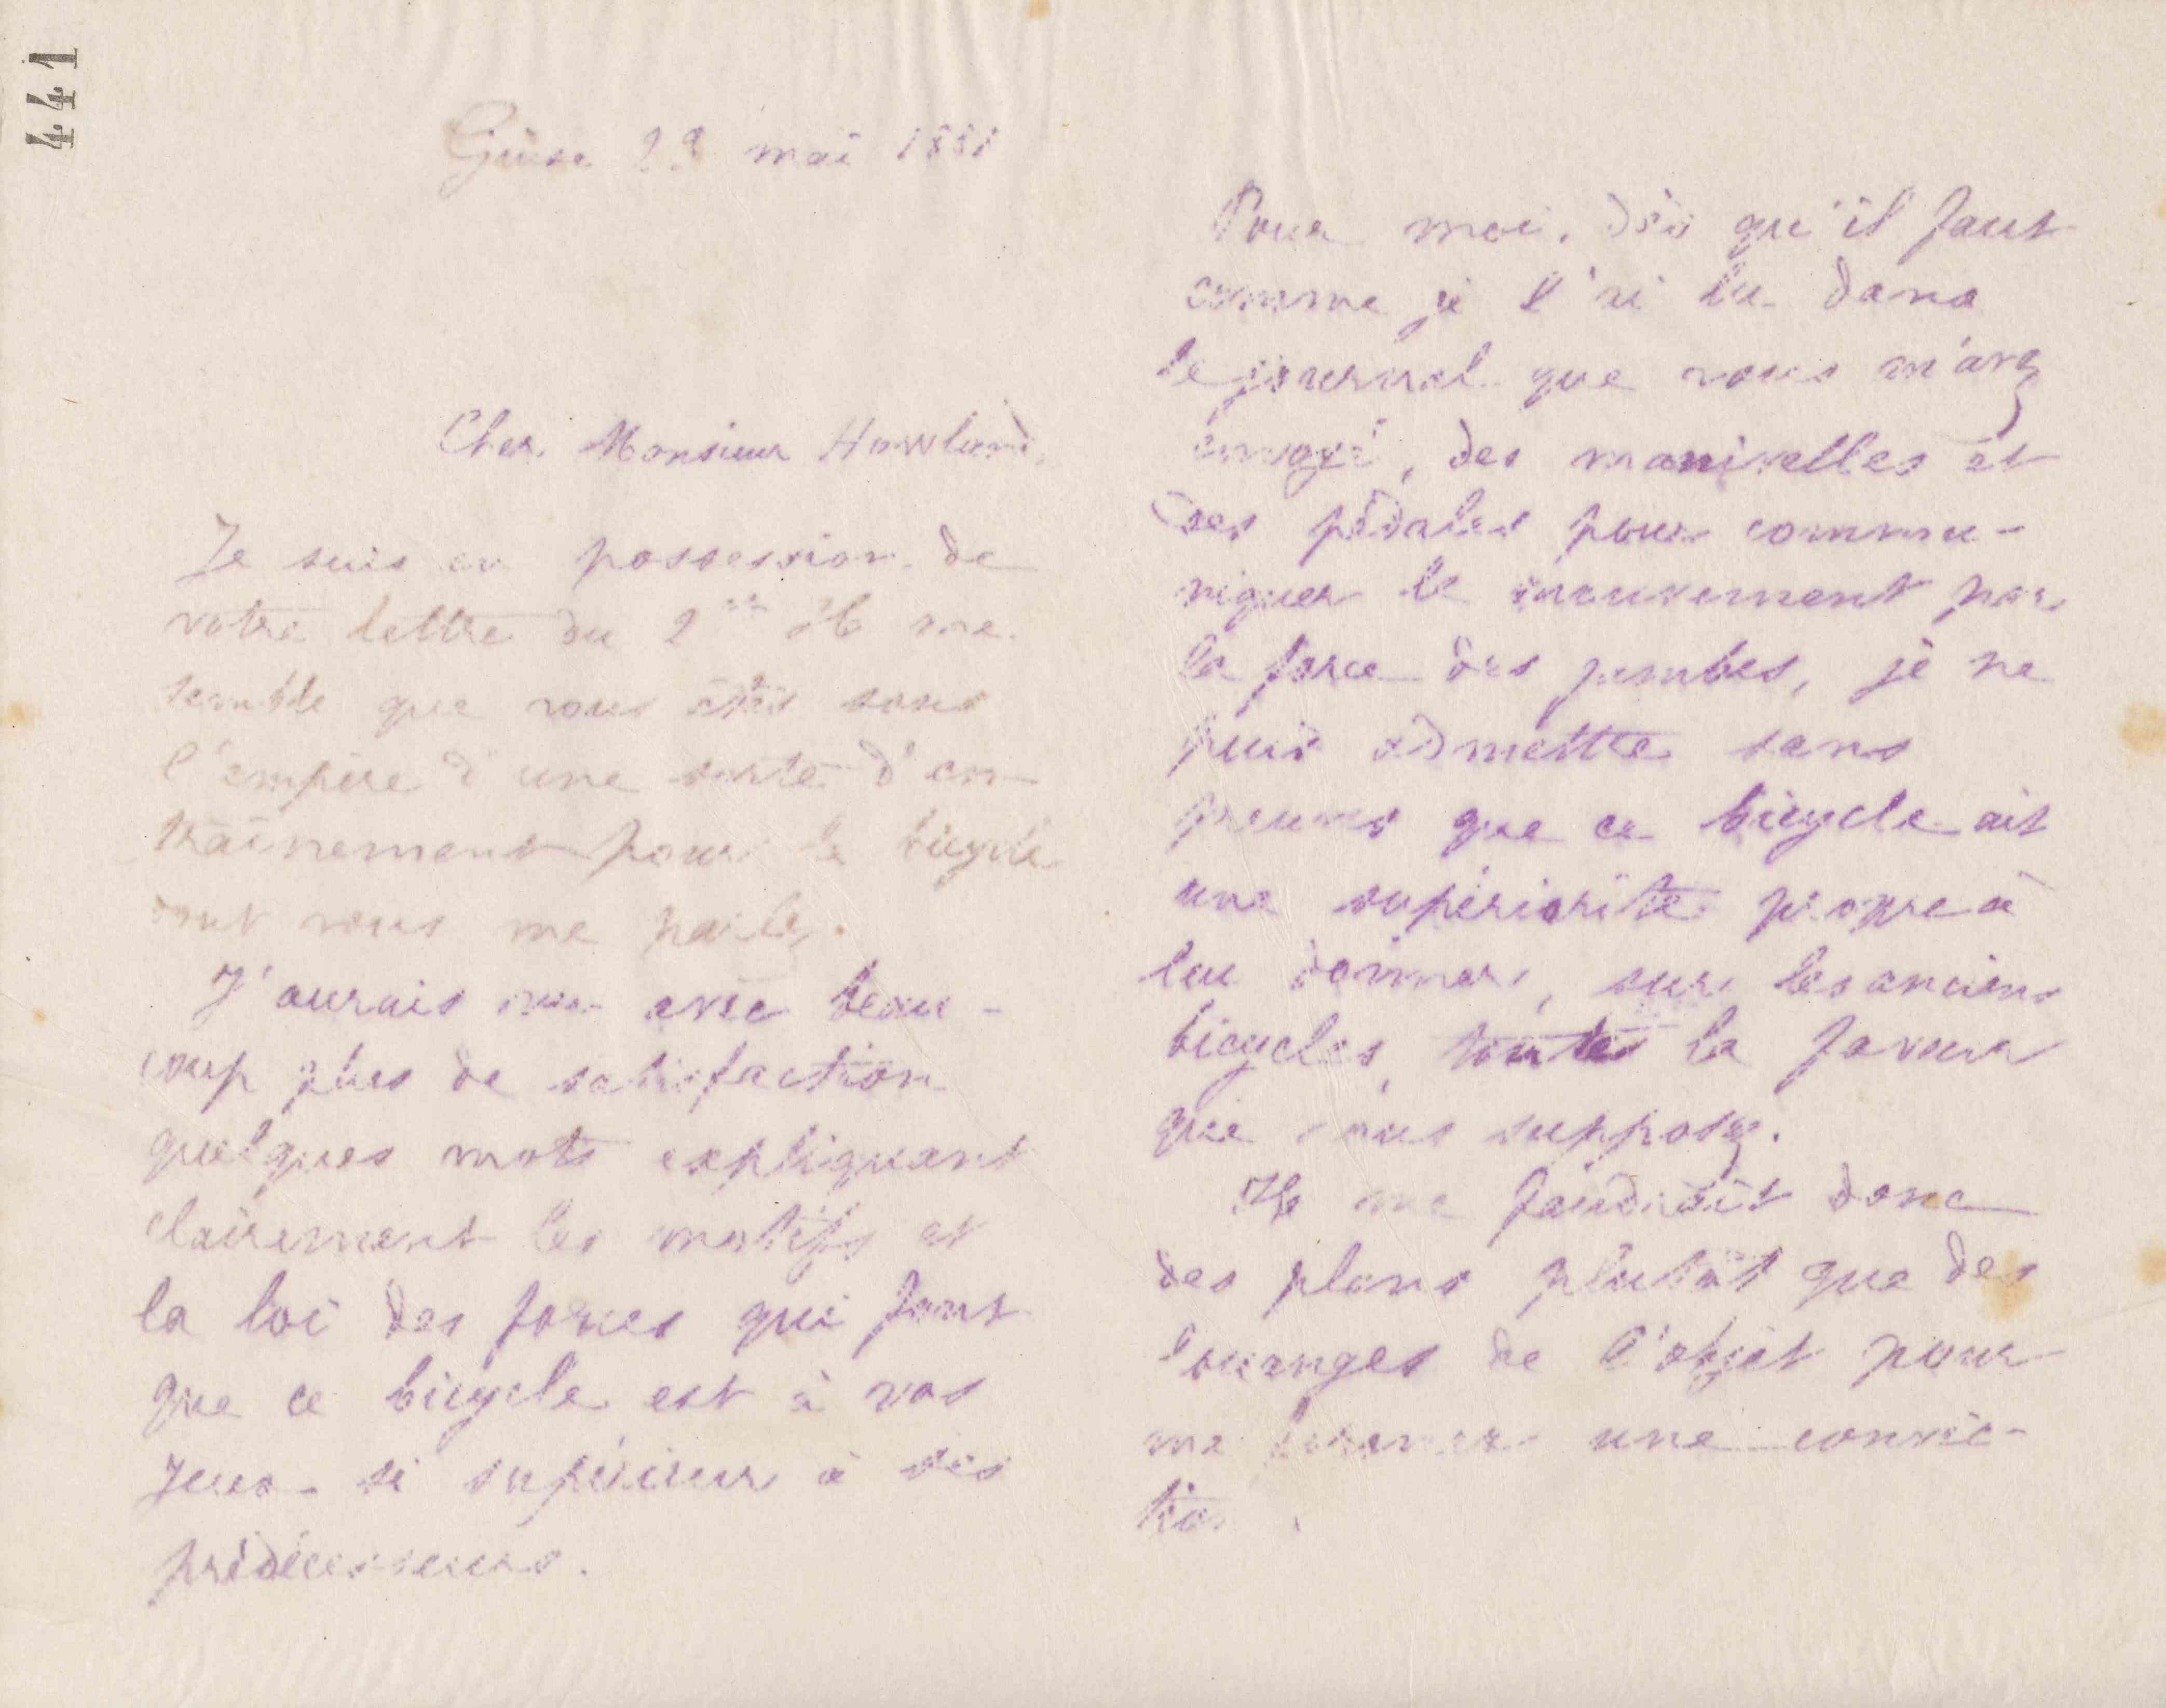 441
Guise 29 mai 1881
Cher Monsieur Howland,
Je suis en possession de
votre lettre du 2 Il me
semble que vous êtes sous
l'empire d'une sorte d'en
traînement pour le bicycle
dont vous me parlez.
J'aurais vu avec beau-
coup plus de satisfaction
quelques mots expliquant
clairement les motifs et
la loi des forces qui font
que ce bicycle est à vos
yeux si supérieur à ses
prédécesseurs.
Pour moi, dès qu'il faut
comme je l'ai lu dans
le journal que vous m'avez
envoyé, des manivelles et
des pédales pour commu-
niquer le mouvement par
la force des jambes, je ne
puis admettre sans
preuves que ce bicycle ait
une supériorité propre à
lui donner, sur les anciens
bicycles, toutes la faveur
que vous supposez.
Il me faudrait donc
des plans plutôt que des
louanges de l'objet pour
me former une convic-
tion.